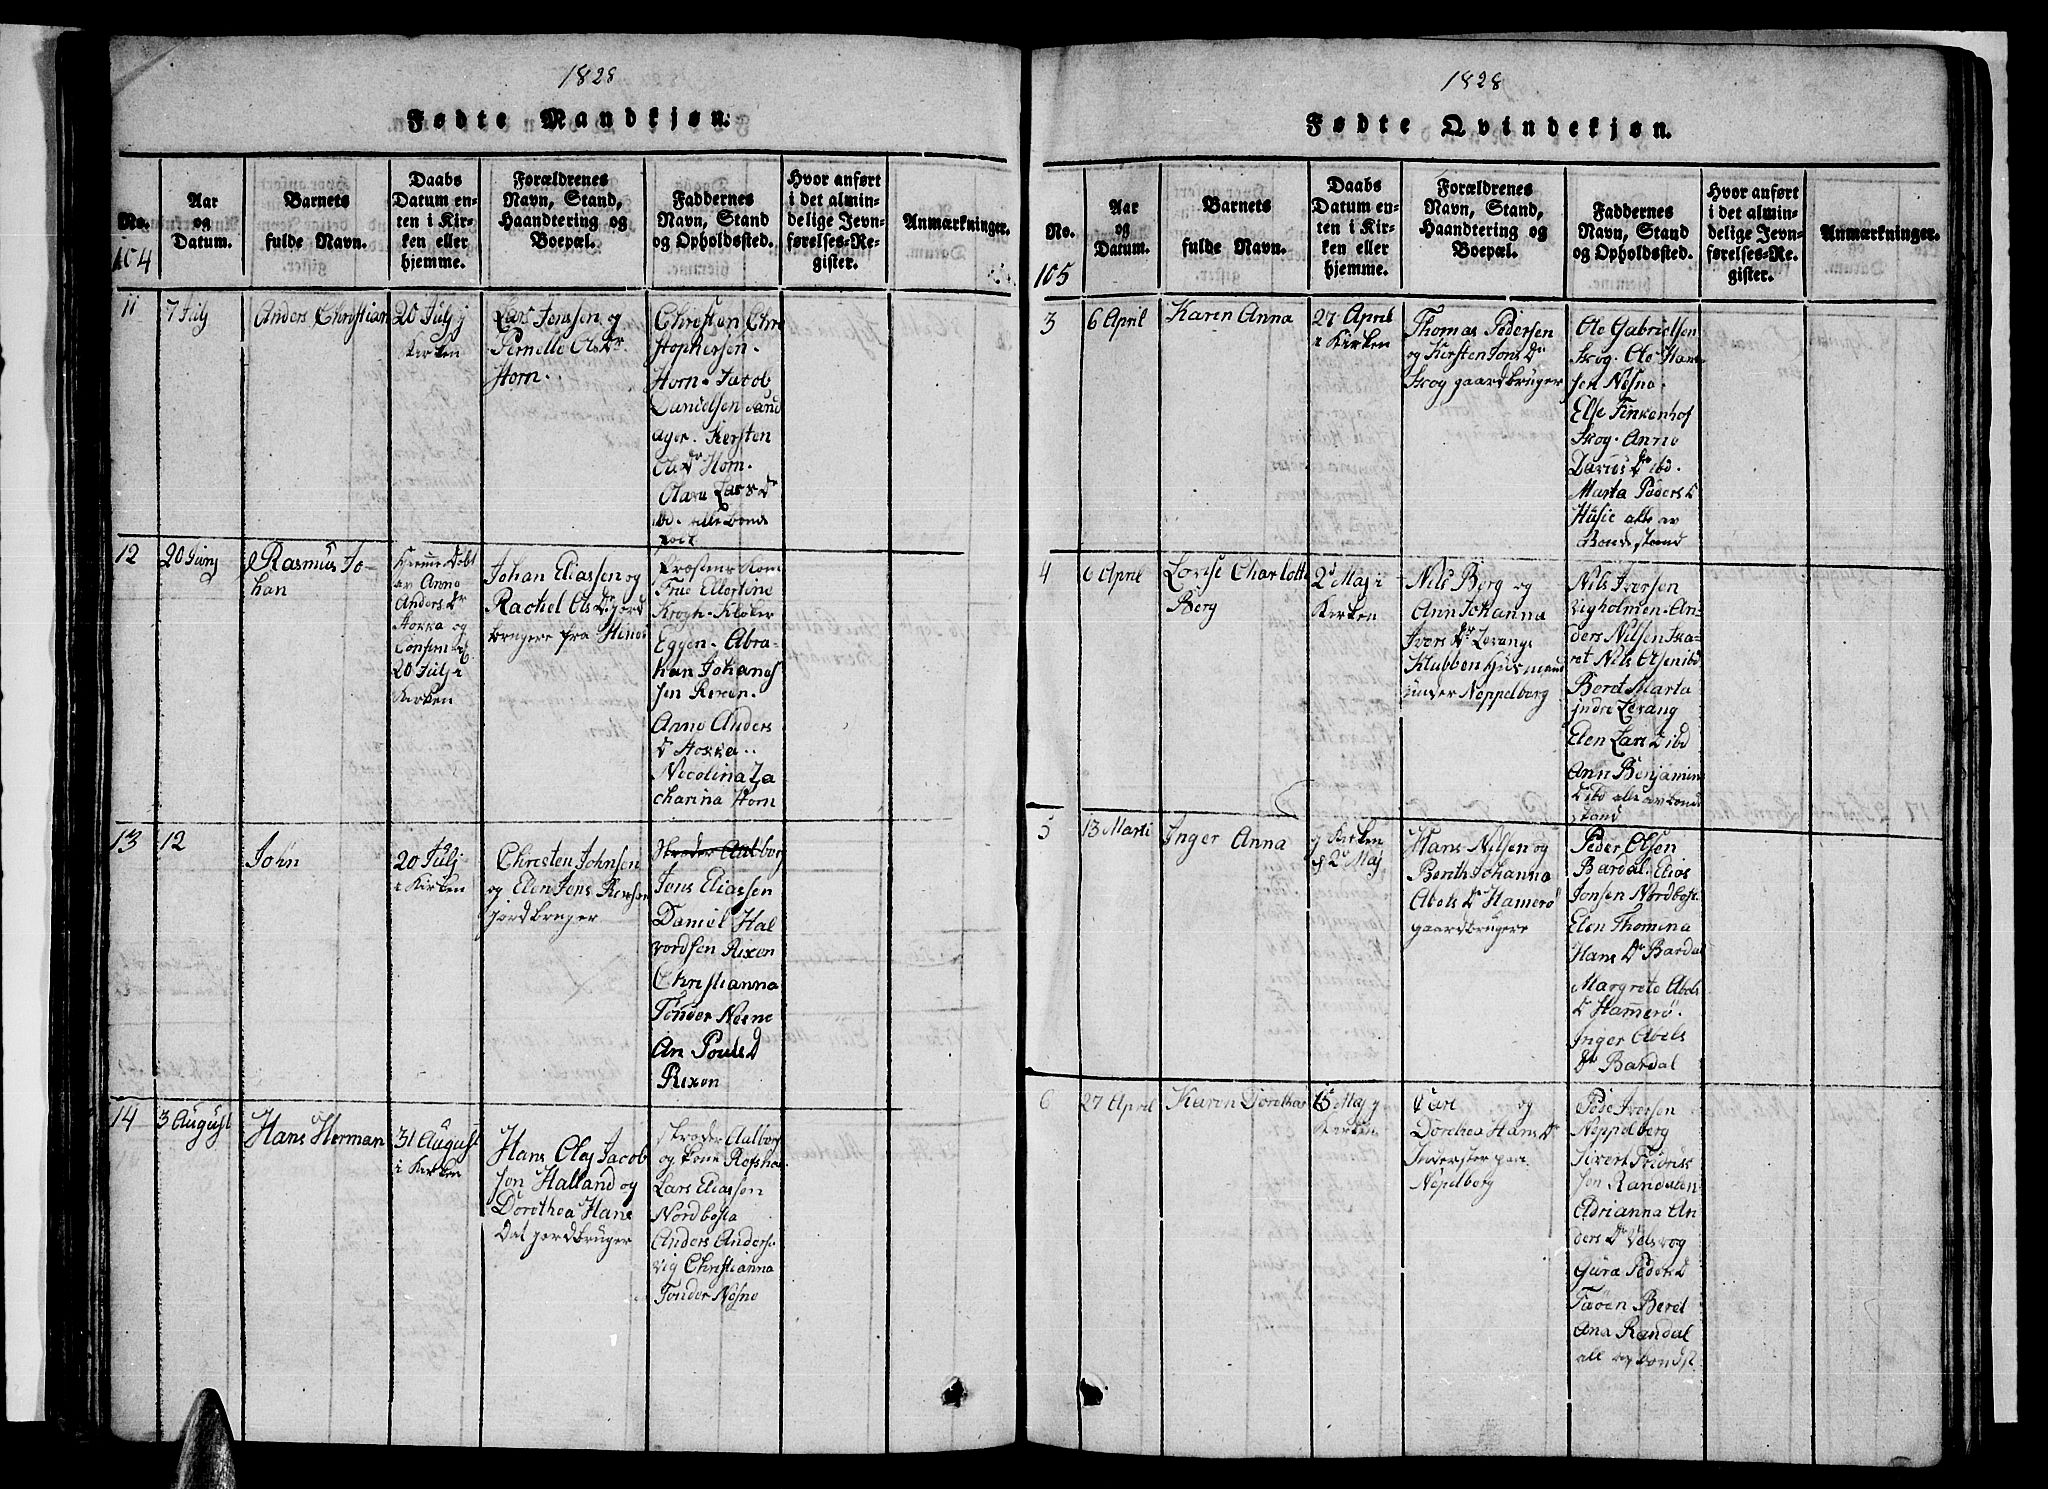 1828
Fødte Mandkjøn.
No.
104
Aar
og
Datum.
Barnets
fulde Navn.
Daabs
Datum en-
ten i Kir-
ken eller
hjemme.
Forældrenes
Navn, Stand,
Haandtering og
Boepæl.
Faddernes
Navn, Stand
og Opholdssted.
Hvor anført
i det almin-
delige Jevn-
førelses-Re-
gister.
Anmærkninger.
11
7 Julj
Anders Christian
20 Julj
Kirken
Lars Jenssen og
Pernelle Ols Dr
Horn.
Christen Chri
stophersen
Horn. Jacob
Danielsen Sand
ager. Kersten
Ols Dr Horn.
Lars Dr
ibd. alle bonde
12
20 Junj
Rasmus Jo-
han
Hjemme Døbt
av Anne
Anders Dr
Hokka og
20 Julj i
Kirken
Johan Eliassen og
Rachel Ols Dr jord
brugere fra
Frue Ellertine
Krogh. Kloker
Eggen. Abra-
han Johanes
sen Rixen.
Anne Anders
D Hokka.
Nicolina Za
charina Horn
13
12
John
20 Julj
i Kirken
Christen Johnsen
og Elen Jens
jordbruger
Skroder Aalborg
Jens Eliassen
Daniel Hal
vordsen Rixen
Christianna
Tonder Nesne
An Pouls D
Rixen
14
3 August
Hans Herman
31 August
i Kirken
Hans Olaj Jacob
sen Halland og
Dorethea Hans
Dat jordbruger
Skroder Aalborg
og kone
Lars Eliassen
Nordbosta
Anders Anderse
vig Christianna
Tonder Nesne
1828
Fødte Qvindekjøn.
No.
105
Aar
og
Datum.
Barnets
fulde Navn.
Daabs
Datum en-
ten i Kir-
ken eller
hjemme.
Forældrenes
Navn, Stand,
Haandtering og
Boepæl.
Faddernes
Navn, Stand
og Opholdssted.
Hvor anført
i det almin-
delige Jevn-
førelses-Re-
gister.
Anmærkninger.
3
6 April
Karen Anna
27 April
i Kirken
Thomas Pedersen
og Kersten Jons Dr
Skog gaardbruger
Ole Gabrielsen
Skog. Ole Han-
sen Nesna.
Else Finkenhof
Skog. Anne
Darios Dr ibd.
Marta Peders D
Husie alle av
Bondestand
4
6 April
Lovise Charlotte
Berg
2d Maj i
Kirken
Nils Berg og
Ann Johanna
Ivers Dr Levang
Klubben Husmand
under Neppelberg
Nils Iversen
vigholmen. An-
ders Nilsen Ska-
ret Nils Olsen ibd
Beret Marta
indre Levang
Elen Lars D ibd
Ann Benjamins
D ibd alle av bond
stand
5
13 Marti
Inger Anna
i Kirken
d 2d Maj
Hans Nilsen og
Bereth Johanna
Abels Dr Hamerö
gaardbrugere
Peder Olsen
Bardal. Elias
Jonsen Nordbost.
Elen Thomina
Hans Dr Bardal
Margrete Abels
D Hamerö.
Inger Abels
Dr Bardal
6
27 April
Karen Dorethea
15 Maj i
Kirken
og
Dorethea Hans Dr
Inderster paa
Nepelberg
Peder Iversen
Neppelberg
Sivert Fridriks
sen Randalen
Adrianna An
ders Dr
Gura Peders D
Beret
Ana Randal
all av bondst.